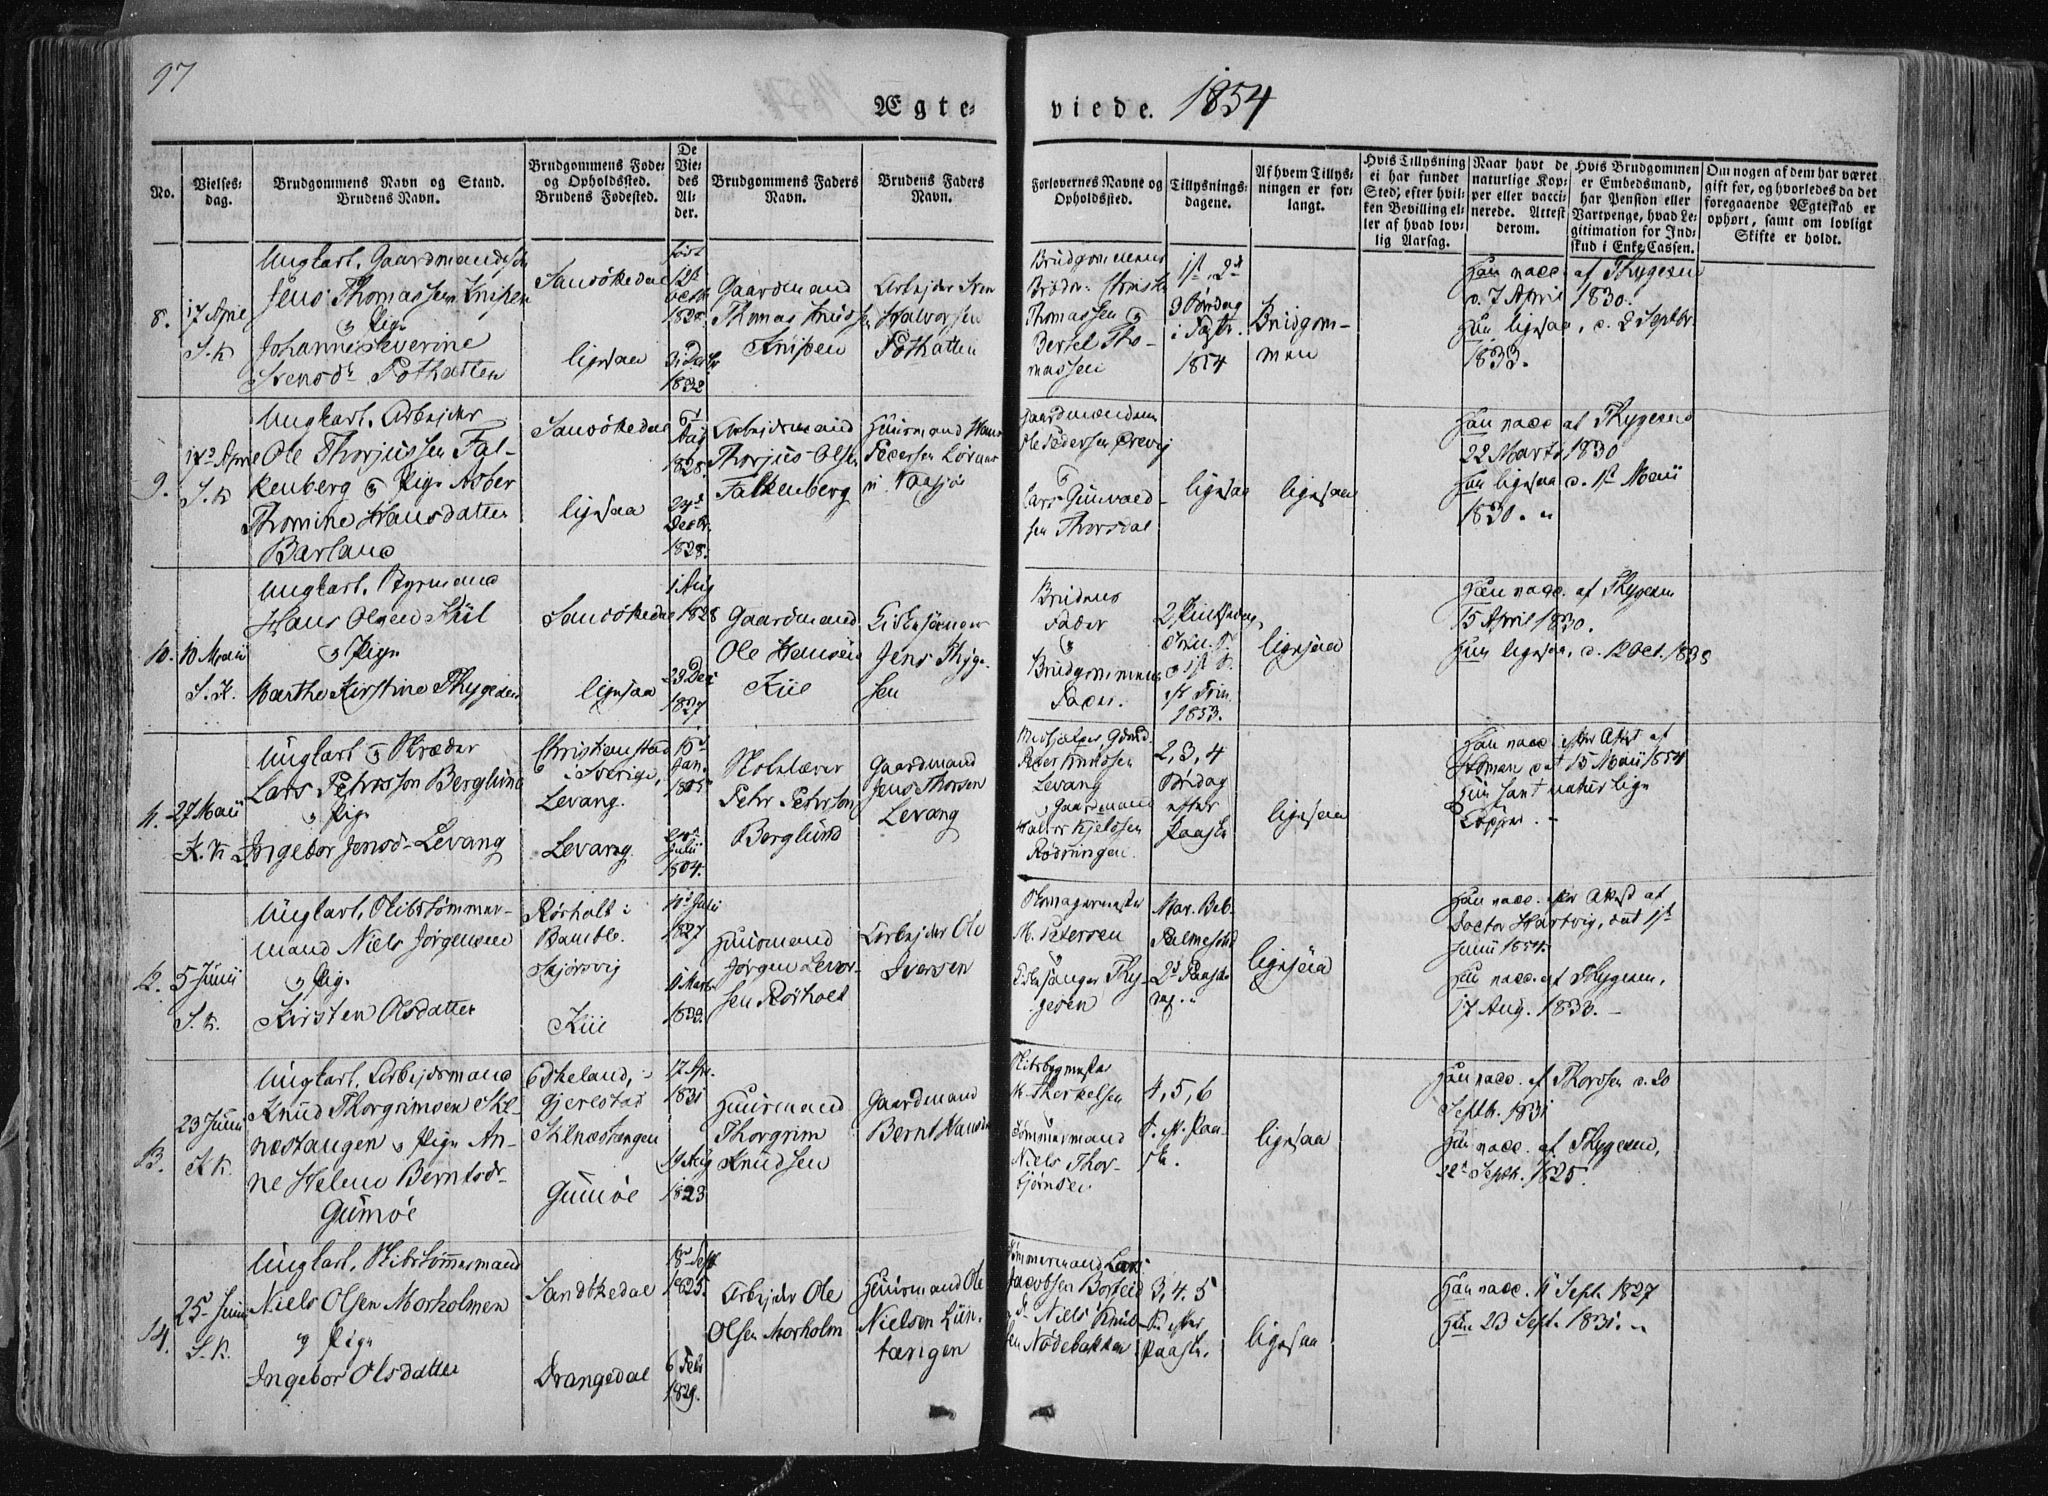 97
Ægte-
viede. 1854
No.
Vielses-
dag.
Brudgommens Navn og Stand.
Brudens Navn.
Brudgommens Føde-
og Opholdssted.
Brudens Fødested.
De
Vie-
des
Al-
der.
Brudgommens Faders
Navn.
Brudens Faders
Navn.
Forlovernes Navne og
Opholdssted.
Tillysnings-
dagene.
Af hvem Tillys-
ningen er for-
langt.
Hvis Tillysning
ei har fundet
Sted, efter hvil-
ken Bevilling el-
ler af hvad lov-
lig Aarsag.
Naar havt de
naturlige Kop-
per eller vacci-
nerede. Attest
derom.
Hvis Brudgommen
er Embedsmand,
har Pension eller
Vartpenge, hvad Le-
gitimation for Ind-
skud i Enke Cassen.
Om nogen af dem har været
gift før, og hvorledes da det
foregaaende Ægteskab er
ophørt, samt om lovligt
Skifte er holdt.
8.
17 April
S. K
Ungkarl, Gaardmandssøn
Jens Thomassen Knipen
og Pige
Johanne Severine
Svensdr Pothatten
Sandökedal
ligesaa
født
12te
Octb
1830.
31 Decbr
1832
Gaardmand
Thomas Knudsen
Knipen
Arbejder Sven
Halvorsen
Pothatten
Brudgommens
Brödre
Thomassen og
Bertel Tho-
massen
1st, 2d
3 Søndag
i Faste.
1854
Brudgom-
men
Han vacc. af Thygesen
d. 7 April 1830.
Hun ligesaa, d. 2 Septbr.
1833.
9.
17 April
S. K
Ungkarl, Arbejder
Ole Thorjussen Fal-
kenberg og Pige Asber
Thomine Hansdatter
Barland
Sandökedal
ligesaa
6
Aug
1828.
24
Decbr.
1828.
Arbejdsmand
Thorjus Olsen
Falkenberg
Huusmand Hans
Pedersen
Vaasjö
Gaardmændene
Ole Pedersen
og
Lars Gunvald-
sen Thorsdal
ligesaa
ligesaa
Han vacc af Thygesen
22 Marts 1830
Hun ligesaa d. 1st Maii
1830.
10.
10 Maii
S. K.
Ungkarl, Styrmand
Hans Olsen Kiil
og Pige
Marthe Kirstine Thygesen
Sandökedal
ligesaa
1 Aug
1828
23 Dec
1827
Gaardmand
Ole Hansen
Kiil
Kirkesanger
Jens Thyge-
sen
Brudens
Fader
og
Brudgommens
Fader.
1853.
ligesaa
Han vacc. af Thygesen
15 April 1830.
Hun ligesaa, d. 12 Oct. 1833
11.
27 Maii
K. K
Ungkarl og Skræder
Lars Petersson Berglund
og Pige
Ingebor Jensdr Levang
Christianstad
i Sverige,
Levang.
Levang.
15
Jan.
1805
Julii
1804.
Petr Petrson
Berglund
Gaardmand
Jens Thorsen
Levang
Peder Knudsen
Levang
og Gaardmand
Halvor Kjeldsen
Rödningen.
2, 3, 4
Söndag
efter
Paaske
ligesaa
Han vacc. efter Attest af
Homan dat 15 Maii 1854
Hun havt naturlige
Kopper.
12.
5 Junii
S. K.
Ungkarl, Skibstömmer-
mand Niels Jörgensen
og Pige
Kirsten Olsdatter
Rörholt i
Bamble.
Skjörsvig
Kiil
Julii
1827
11 Marts
1833.
Huusmand
Jörgen
sen Rörholt
Arbejder Ole
Svensen
M. Petersen
og
Kirkesanger Thy-
gesen
Mar. Beb.
Palmesönd
2d Paaske
ligesaa
Han vacc. efter Attest af
Doctor Hartvig, dat 1st
Junii 1854.
Hun vacc. af Thygesen,
17 Aug. 1833.
13.
23 Junii
S. K.
Ungkarl, Arbejdsmand
Knud Thorgrimsen Skl-
næstangen og Pige An-
ne Helene Berntsdr
Gumøe
Eskeland, i
Gjerestad
Gumøe
17 Apr.
1831
19 Aug
1823
Huusmand
Thorgrim
Knudsen
Gaardmand
Bernt Hansen
Skibsbygmester
K. Therkelsen
Tömmermand
Niels Thor-
björnsen
4, 5, 6
S. eft. Paa-
ske.
ligesaa
Han vacc. af Thordsen d. 20
Septb. 1831
Hun vacc. af Thygesen,
12 Septb. 1825.
14.
25 Junii
S. K.
Ungkarl, Skibstömmermand
Niels Olsen Morholmen
og Pige
Ingebor Olsdatter
Sandökedal
Drangedal
18 Sept
1825.
6 Feb
1829.
Arbejder Ole
Olsen Morholm
Huusmand Ole
Nielsen
Tömmermand Lars
Jacobsen
Niels Knud-
sen Nødebakken
3, 4. 5
S. efter
Paaske.
ligesaa
Han vacc. 11 Sept. 1827
Hun 23 Sept. 1831.